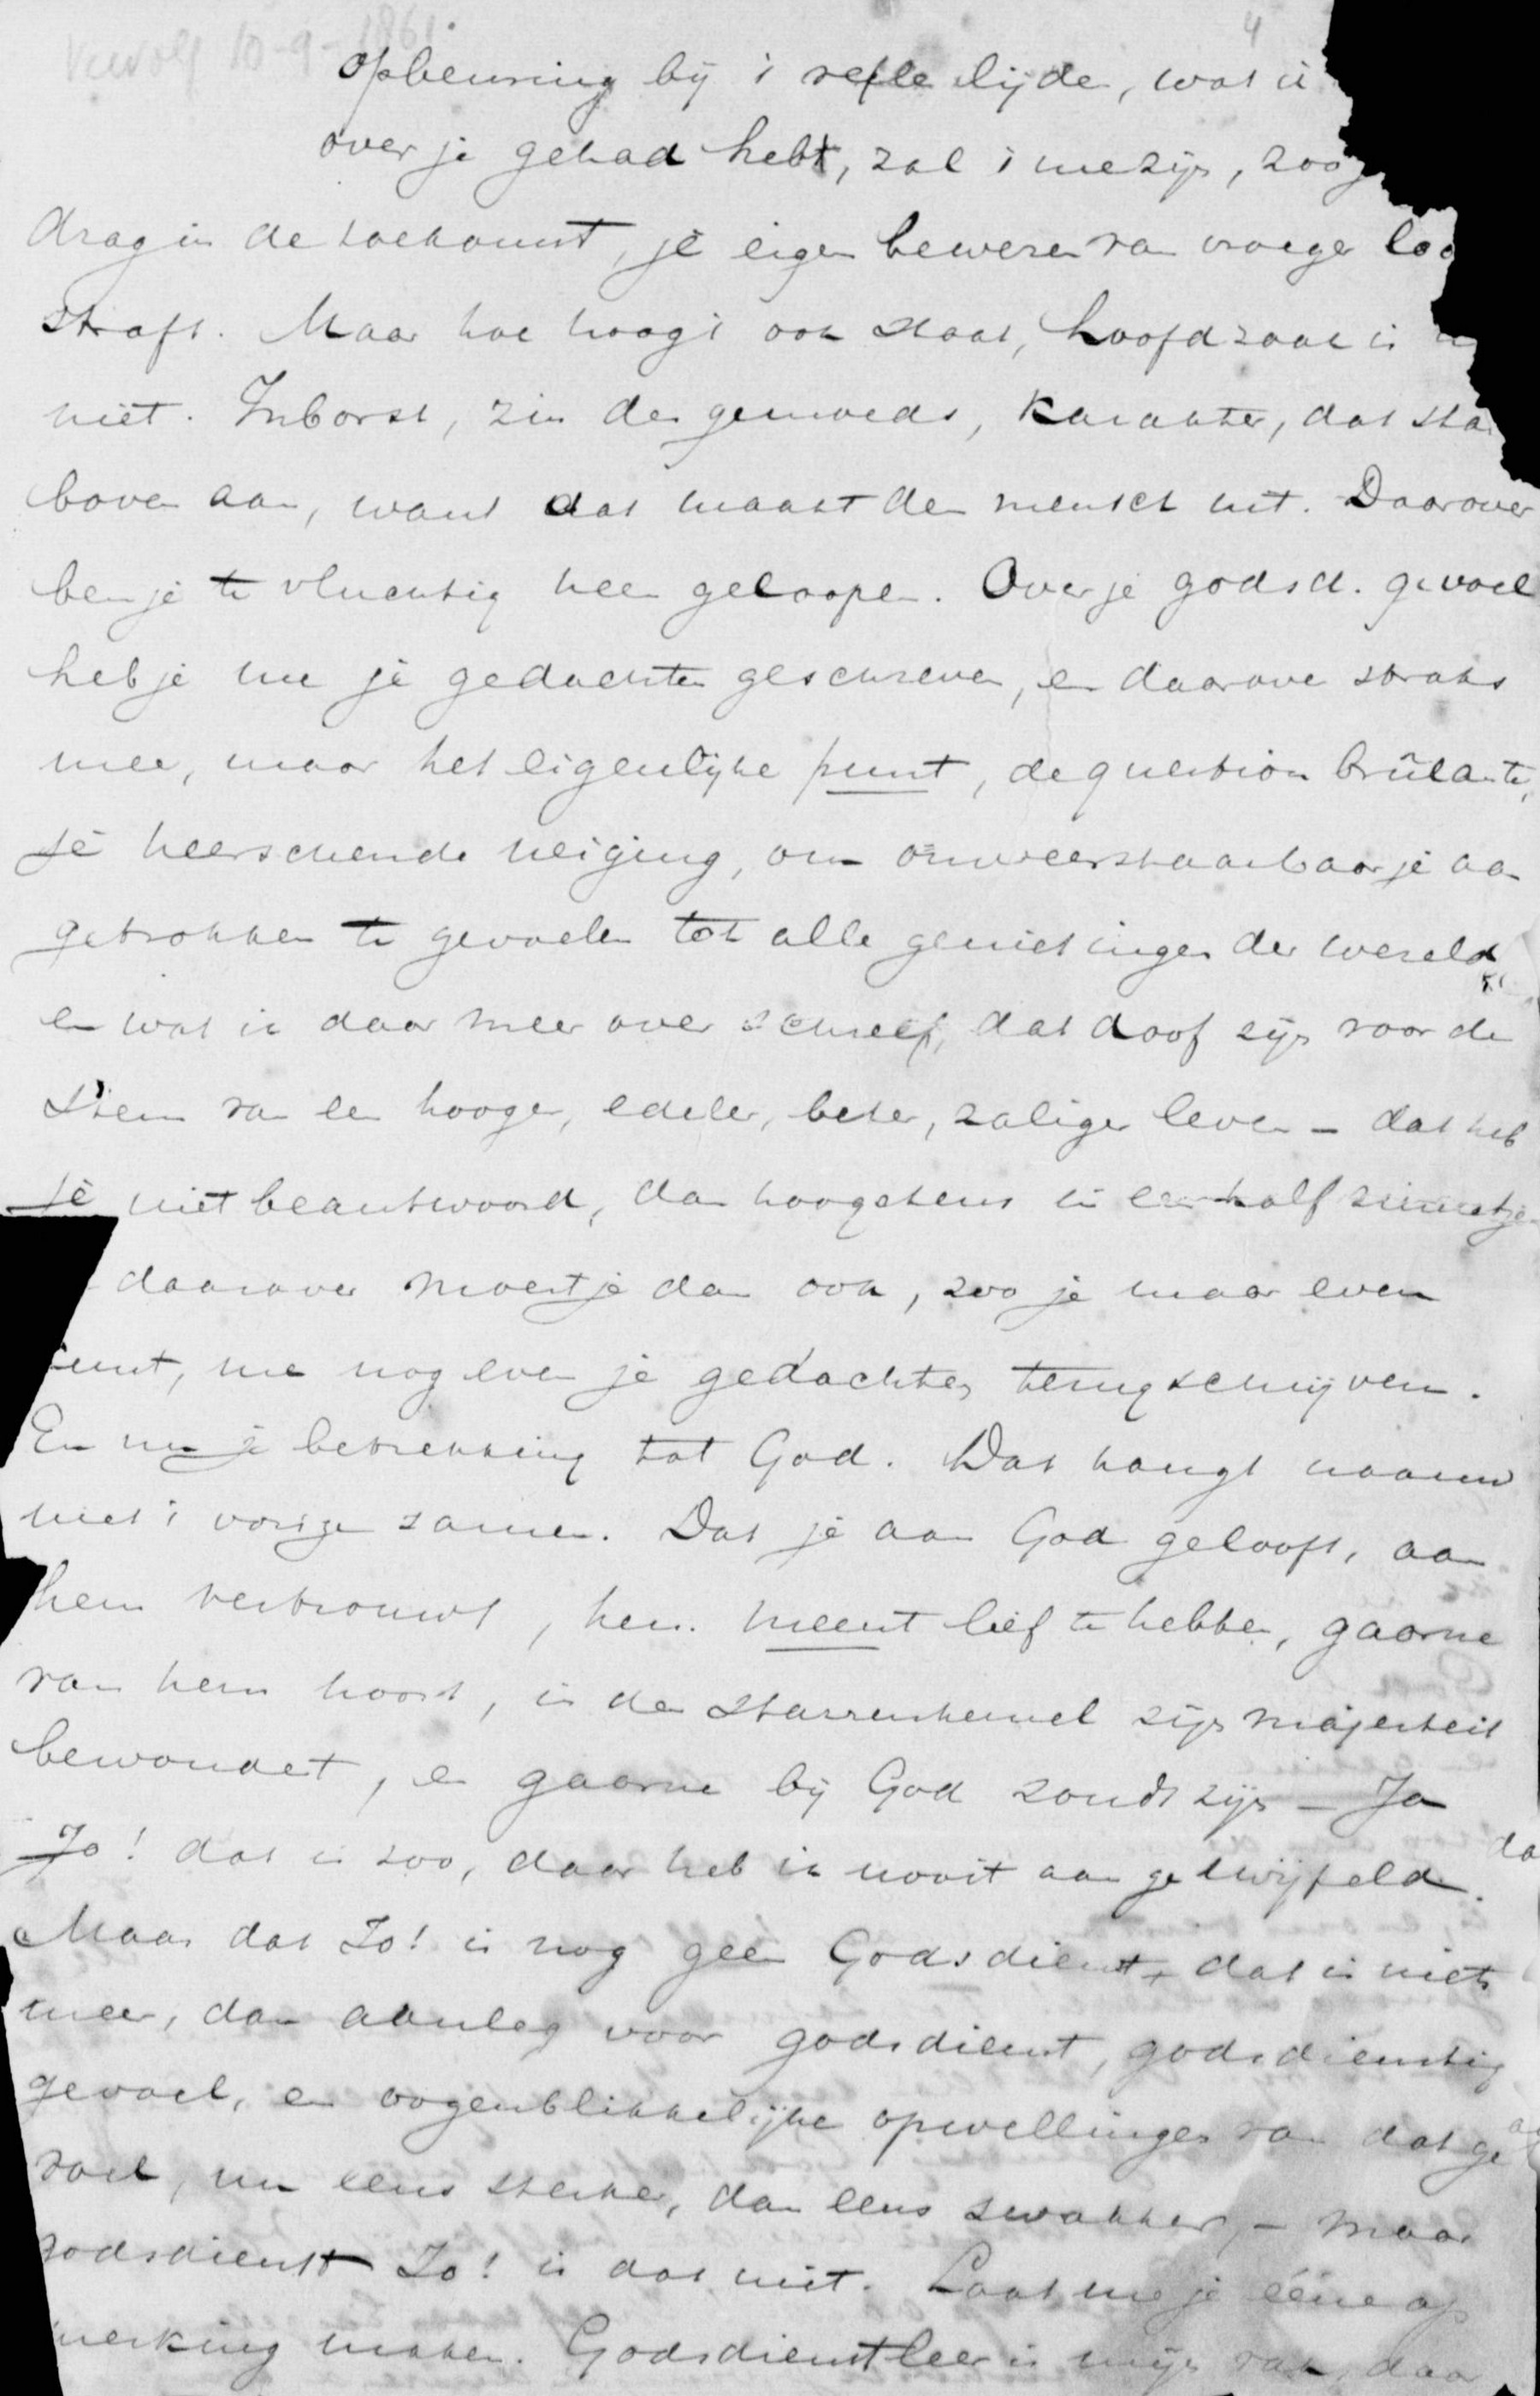 Vervolg 10-9-1861. 4
opbeuring bij 't lijde, wat ik
over je gehad hebt, zal 't me zijn, zoo je
drag in de toekomst, je eigen beweren van vroeger loo
straft. Maar hoe hoog 't ook staat, hoofdzaak is
niet. Inborst, zin des gemoeds, karakter, dat sta
boven aan, want dat maakt den mensch uit. Daarover
ben je te vluchtig heen geloopen. Over je godsd. gevoel
heb je me je gedachten geschreven, en daarover straks
meer, maar het eigenlijke punt, de question brûlante,
je heerschende neiging, om onweerstaanbaar je aan
getrokken te gevoelen tot alle genietingen der wereld
en wat ik daar meer over schreef, dat doof zijn voor de
stem van een hooger, edeler, beter, zaliger leven - dat heb
je niet beantwoord, dan hoogstens in een half zinnetje
daarover moest je dan ook, zoo je maar even
kunt, me nog even je gedachten terugschrijven.
En nu je betrekking tot God. Dat hangt naauw
met 't vorige samen. Dat je aan God gelooft, aan
hem vertrouwt, hem meent lief te hebben, gaarne
van hem hoort, in den starrenhemel zijn majesteit
bewondert, en gaarne bij God zoudt zijn - Ja
Jo! dat is zoo, daar heb ik nooit aan getwijfeld.
Maar dat Jo! is nog géén Godsdienst, dat is niets
meer, dan aanleg voor godsdienst, godsdienstig
gevoel, en oogenblikkelijke opwellingen van dat ge
voel, nu eens sterker, dan eens zwakker, - maar
godsdienst Jo! is dat niet. Laat me je ééne op
merking maken. Godsdienstleer is mijn vak, daar